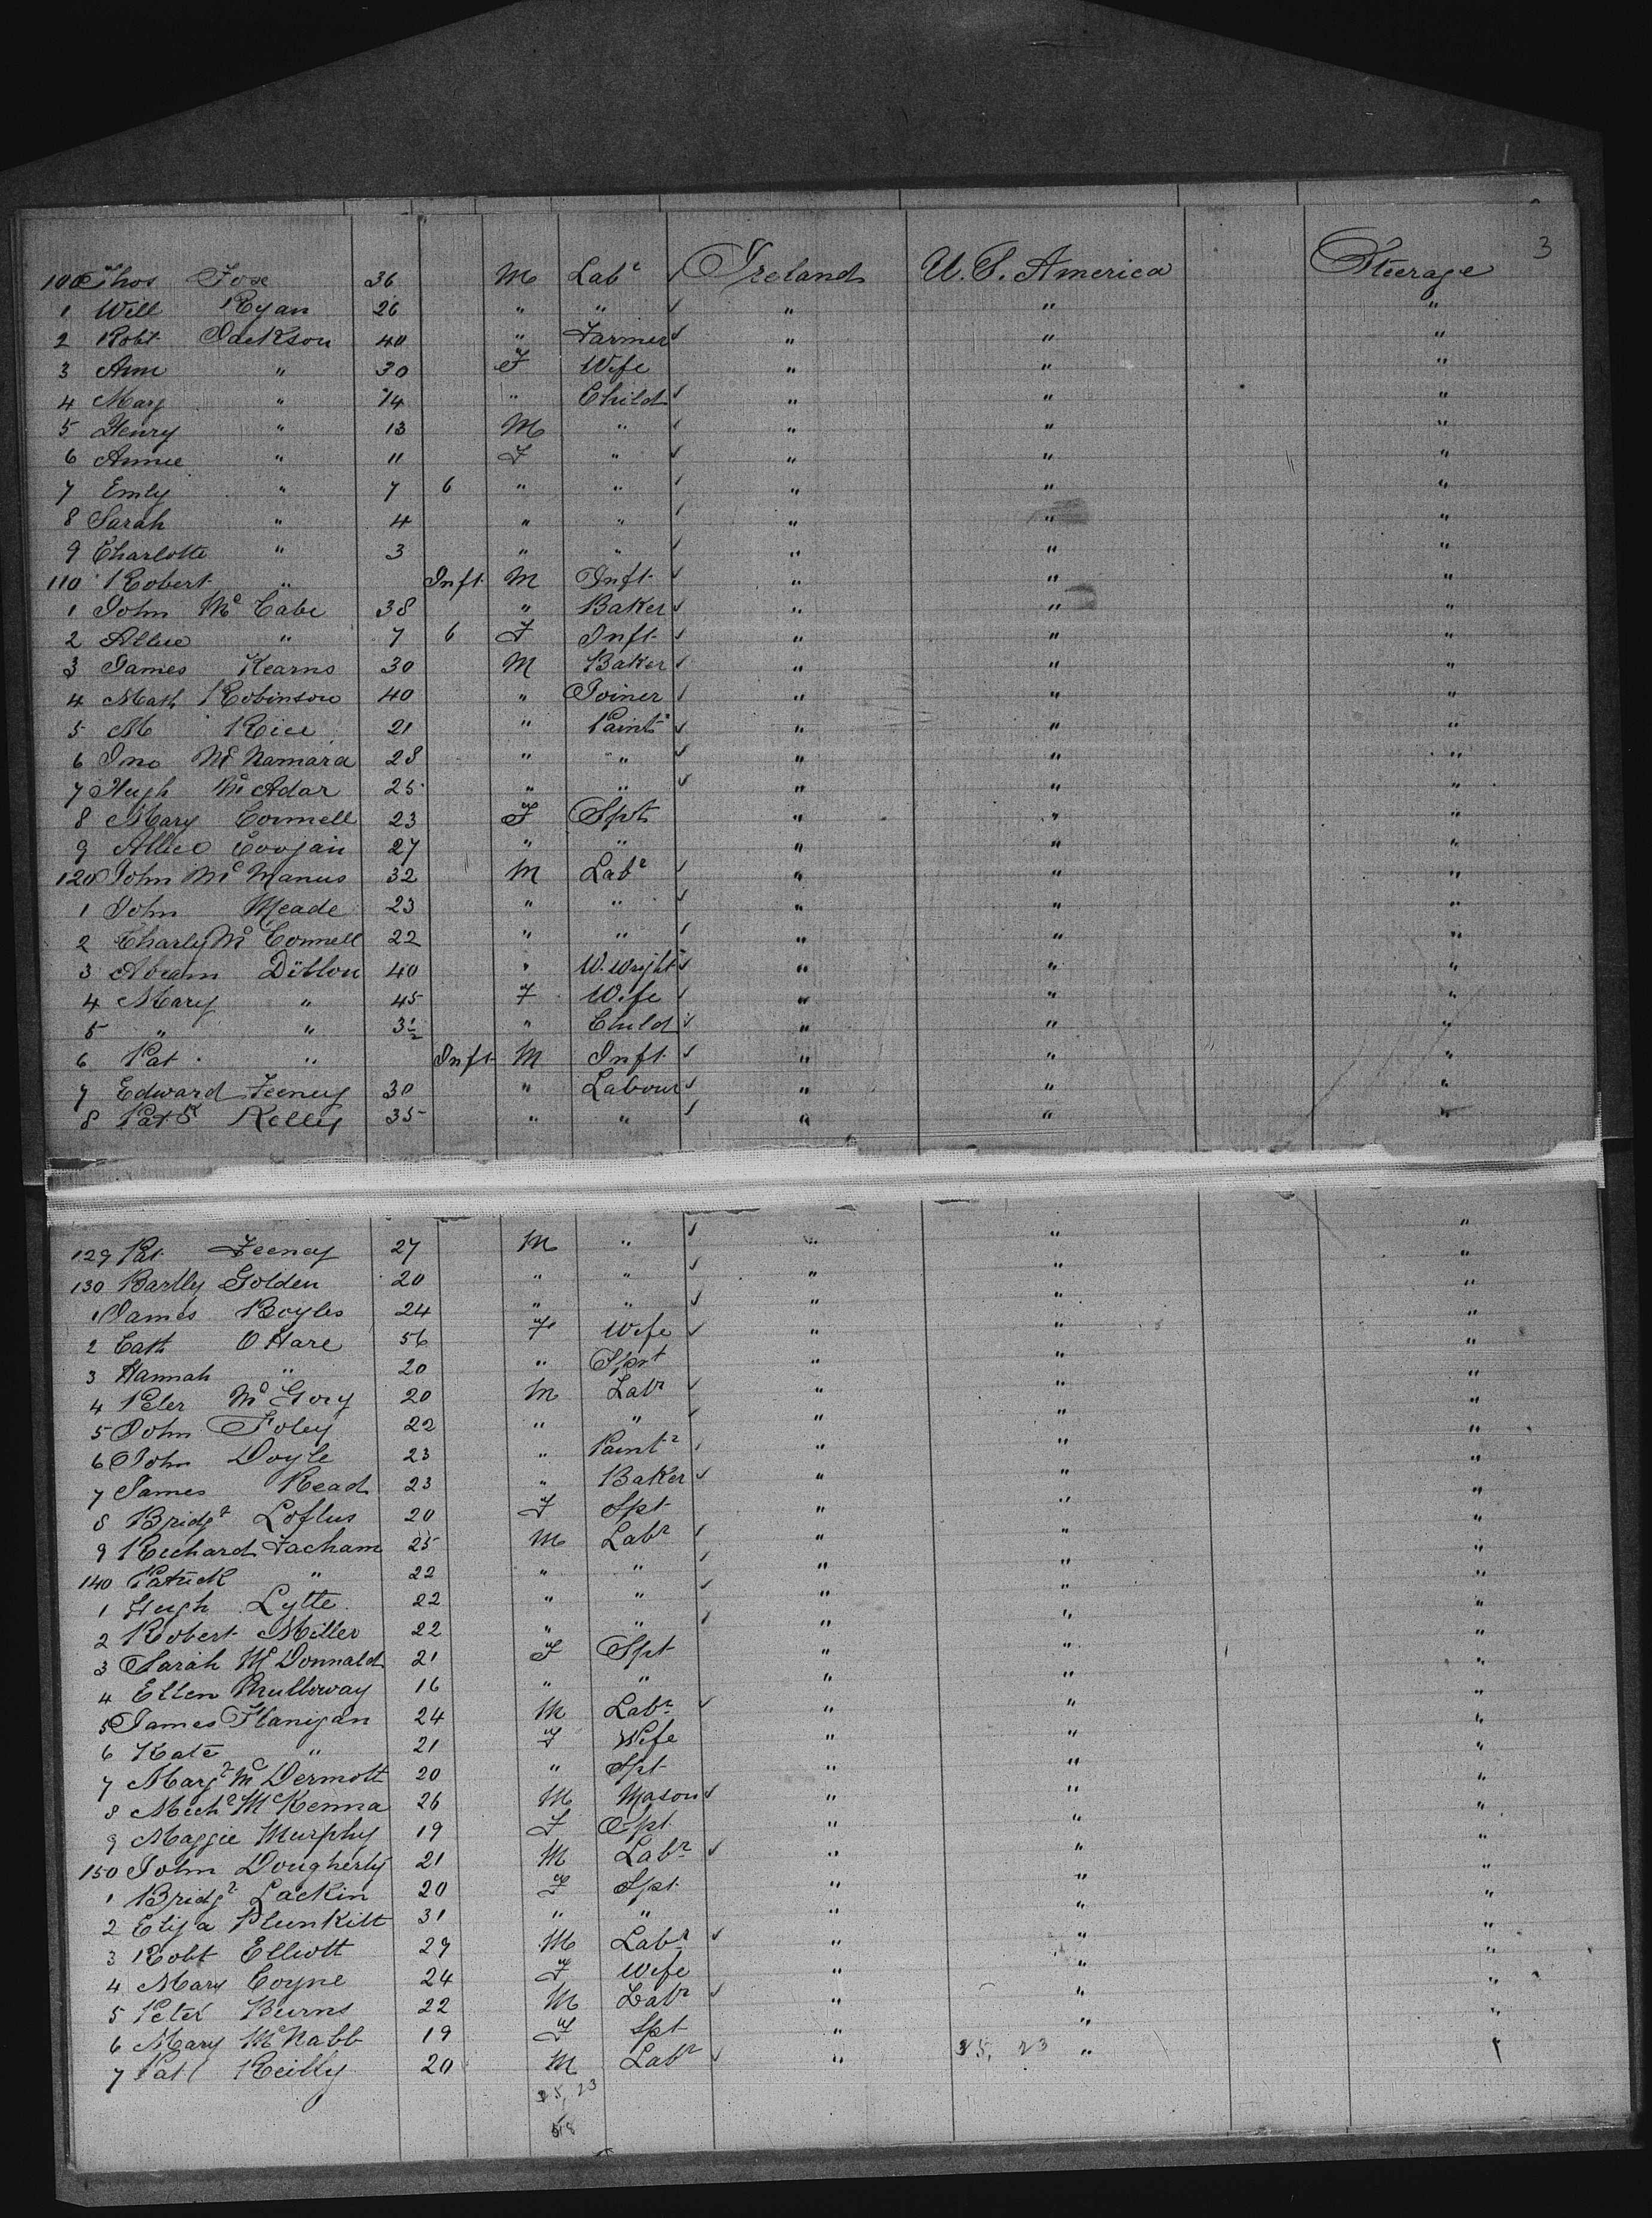 3
100 Thos Fox 36 M Labr ✓ Ireland U.S. America Steerage
1 Will Ryan 26 " " ✓ " " "
2 Robt Jackson 40 " Farmer ✓ " " "
3 Ann " 30 F Wife " " "
4 Mary " 14 " Child ✓ " " "
5 Henry " 13 M " ✓ " " "
6 Annie " 11 F " ✓ " " "
7 Emily " 7 6 " " ✓ " " "
8 Sarah " 4 " " ✓ " " "
9 Charlotte " 3 " " ✓ " " "
110 Robert " Inft M Inft ✓ " " "
1 John McCabe 38 " Baker ✓ " " "
2 Allice " 7 6 F Inft ✓ " " "
3 James Kearns 30 M Baker ✓ " " "
4 Math Robinson 40 " Joiner ✓ " " "
5 M Rice 21 " Paintr ✓ " " "
6 Jno McNamara 28 " " ✓ " " "
7 Hugh McAdar 25 " " ✓ " " "
8 Mary Connell 23 F Spt " " "
9 Allice 27 " " " " "
120 John McManus 32 M Labr ✓ " " "
1 John Meade 23 " " ✓ " " "
2 Charly McConnell 22 " " ✓ " " "
3 Abram Dillon 40 " W.Wright ✓ " " "
4 Mary " 45 F Wife ✓ " " "
5 " " 3½ " Child ✓ " " "
6 Pat " Inft M Inft ✓ " " "
7 Edward Feeney 30 " Labour ✓ " " "
8 Patk Kelley 35 " " ✓ " " "
129 Pat Feeney 27 M " ✓ " " "
130 Bartly Golden 20 " " ✓ " " "
1 James Boyles 24 " " ✓ " " "
2 Cath O Hare 56 F Wife ✓ " " "
3 Hannah " 20 " Spt " " "
4 Peter McGory 20 M Labr ✓ " " "
5 John Foley 22 " " ✓ " " "
6 John Doyle 23 " Paintr ✓ " " "
7 James Read 23 " Baker ✓ " " "
8 Bridgt Loflus 20 F Spt " " "
9 Richard Facham 25 M Labr ✓ " " "
140 Patrick " 22 " " ✓ " " "
1 Hugh Lytte 22 " " ✓ " " "
2 Robert Miller 22 " " ✓ " " "
3 Sarah McDonnald 21 F Spt " " "
4 Ellen Mulloway 16 " " " " "
5 James Flanigan 24 M Labr ✓ " " "
6 Kate " 21 F Wife " " "
7 Margt McDermott 20 " Spt " " "
8 Michl McKenna 26 M Mason ✓ " " "
9 Maggie Murphy 19 F Spt " " "
150 John Dougherty 21 M Labr ✓ " " "
1 Bridgt Lackin 20 F Spt " " "
2 Eliza Plunkitt 31 " " " " "
3 Robt Elliott 29 M Labr ✓ " " "
4 Mary Coyne 24 F Wife " " "
5 Peter Burns 22 M Labr ✓ " " "
6 Mary McNabb 19 F Spt " " "
7 Pat Reilly 20 M Labr ✓ " 35, 23 "
35, 23
58